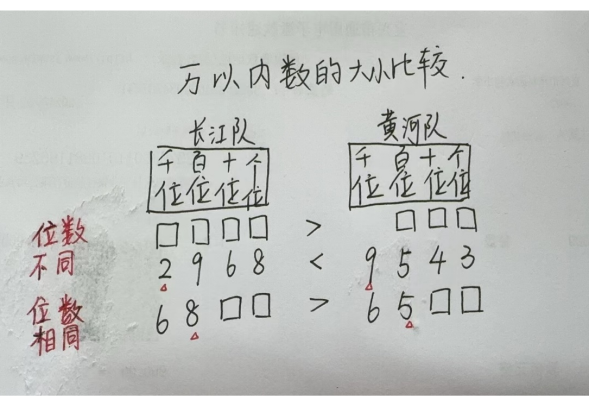 万以内数的大小比较.
长江队 黄河队
千百十个 千百十个
位位位位 位位位位
位数 □□□□ > □□□
不同 2968 < 9543
位数 68□□ > 65□□
相同